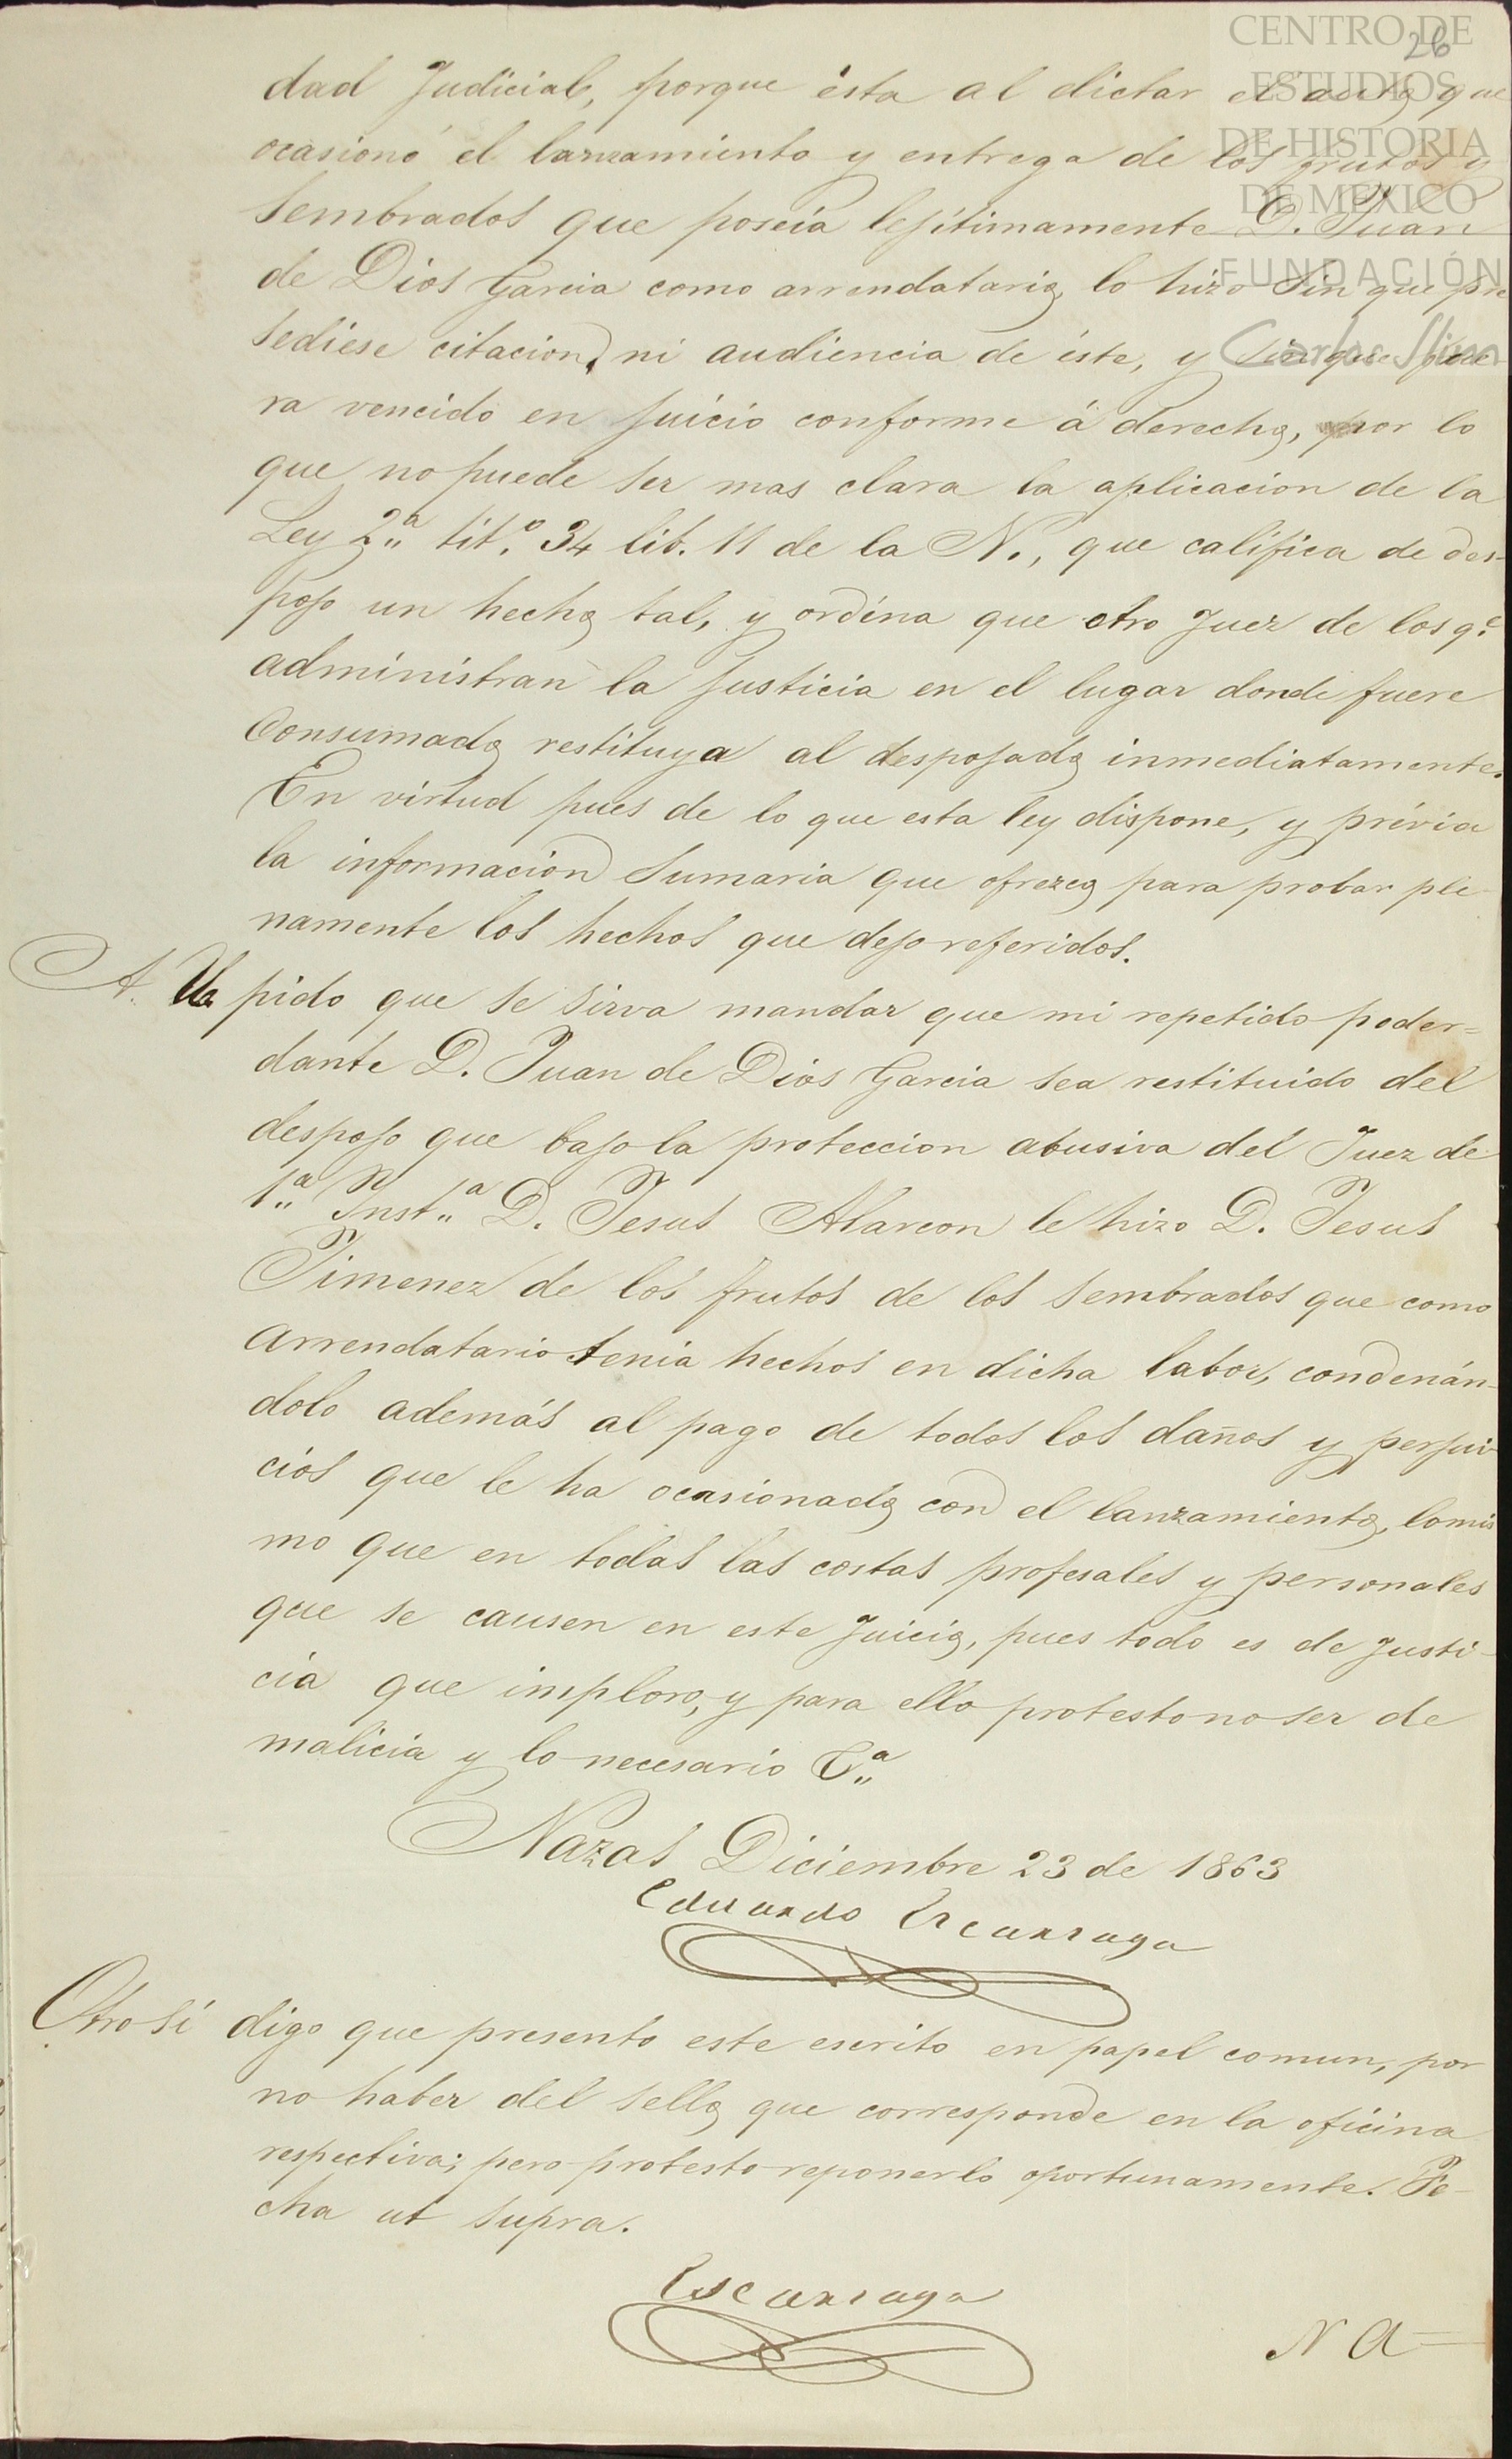 CENTRO DE
ESTUDIOS
DE HISTORIA
DE MEXICO
FUNDACIÓN
Carlos Slim
26
dad Judicial, porque ésta al dictar el auto que
ocasionó el lanzamiento y entrega de los frutos y
sembrados que poseía lejítimamente D. Juan
de Dios Garcia como arrendatario, lo hizo sin que pre
sediese citacion, ni audiencia de éste, y sin que fue
ra vencido en juicio conforme á derecho, por lo
que no puede ser mas clara la aplicacion de la
Ley 2.ª tit.º 34 lib. 11 de la N., que califica de des-
pojo un hecho tal, y ordéna que otro Juez de los q.e
administran la justicia en el lugar donde fuere
consumado restituya al despojado inmediatamente.
En virtud pues de lo que esta ley dispone, y prévia
la informacion sumaria que ofrezco para probar ple
namente los hechos que dejo referidos.
A. U. pido que se sirva mandar que mi repetido poder=
dante D. Juan de Dios Garcia sea restituido del
despojo que bajo la proteccion abusiva del Juez de
1.ª Inst.ª D. Jesus Alarcon le hizo D. Jesus
Jimenez de los frutos de los sembrados que como
arrendatario tenia hechos en dicha labor, condenán-
dolo además al pago de todos los daños y perjui-
cios que le ha ocasionado con el lanzamiento, lo mis
mo que en todas las costas profesales y personales
que se causen en este Juicio, pues todo es de justi-
cia que imploro, y para ello protesto no ser de
malicia y lo necesario &.ª
Nazas Diciembre 23 de 1863
Eduardo Escarzaga
Otro sí digo que presento este escrito en papel comun, por
no haber del sello que corresponde en la oficina
respectiva; pero protesto reponerlo oportunamente. Fe-
cha ut supra.
Escarzaga
N A